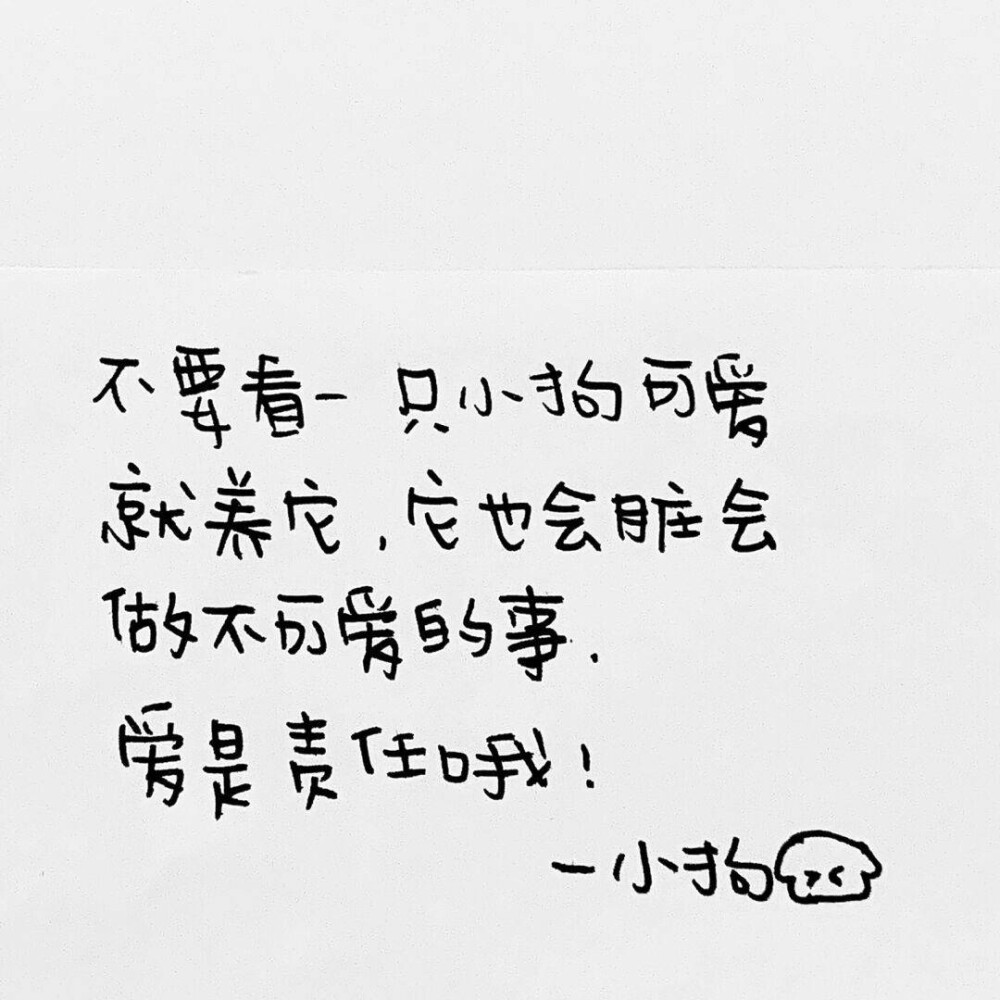 不要看一只小狗可爱
就养它,它也会脏会
做不可爱的事.
爱是责任哦!
—小狗